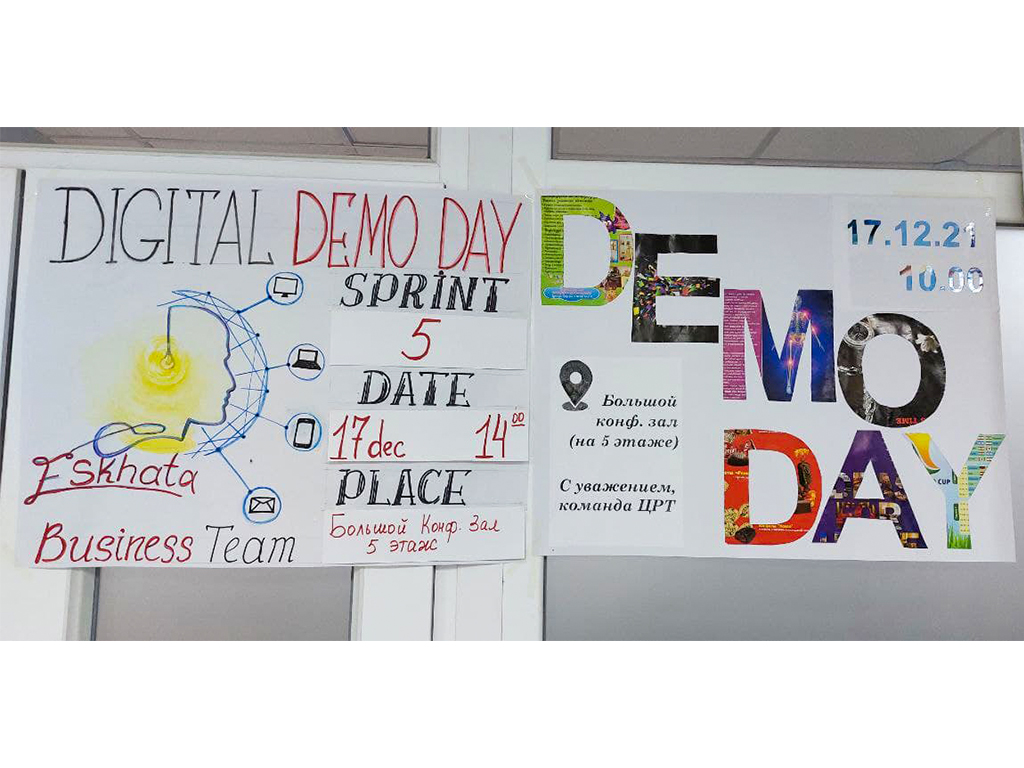 DIGITAL DEMO DAY
SPRINT
5
DATE
17 dec 14 00
PLACE
Большой Конф. Зал
5 этаж
Eskhata
Business Team
DEMO
DAY
17.12.21
10.00
Большой
конф. зал
(на 5 этаже)
С уважением,
команда ЦРТ
CUP